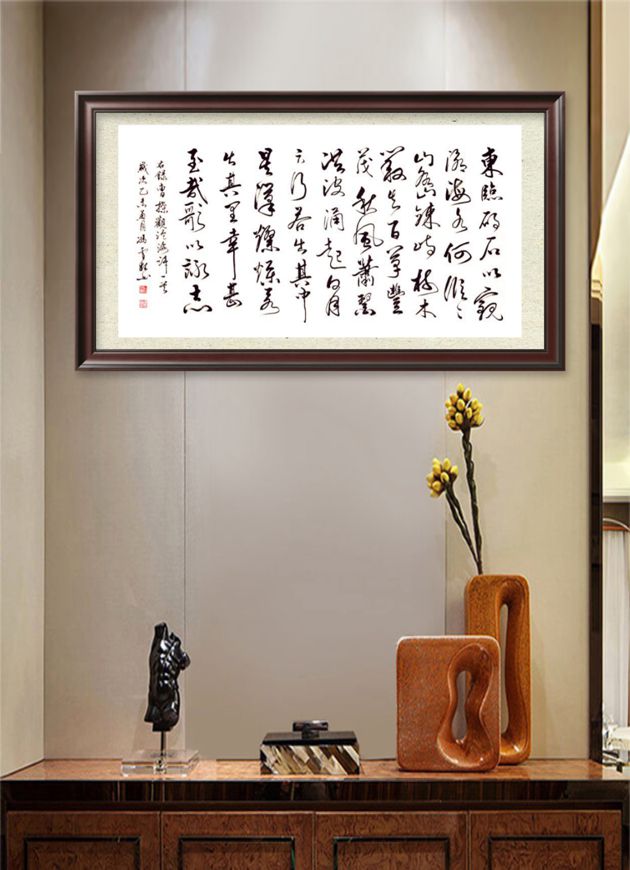 東臨碣石以觀
滄海水何澹〻
山島竦峙樹木
叢生百草豐
茂秋風蕭瑟
洪波涌起日月
之行若出其中
星漢燦爛若
出其里幸甚
至哉歌以詠志
右錄曹操觀滄海詩一首
歲次乙未夏月馮